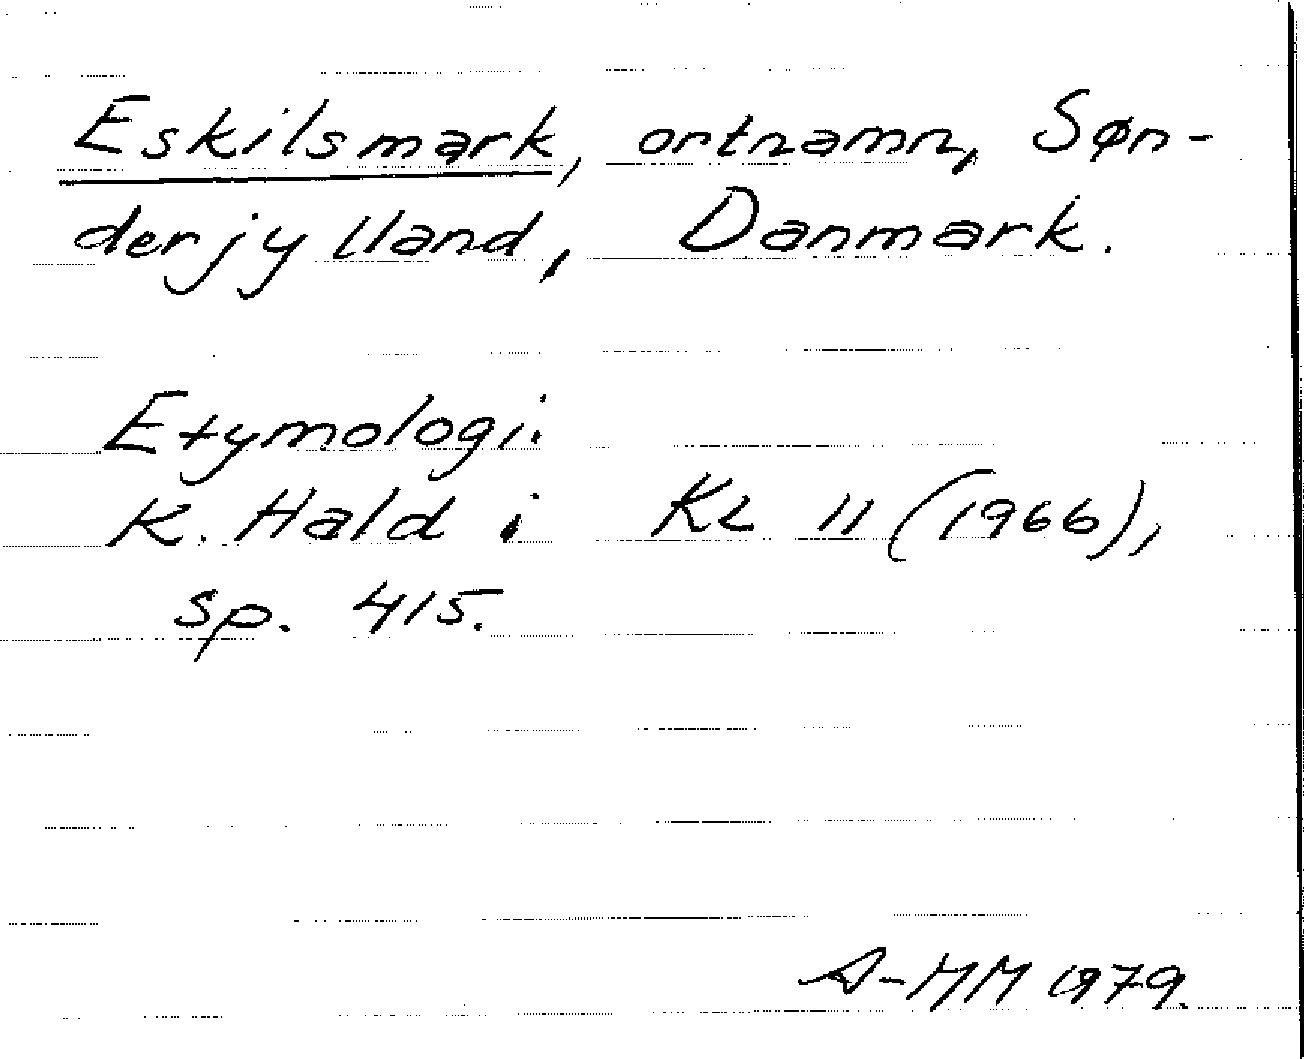 Eskilsmark, ortnamn, Søn-
derjylland, Danmark.
Etymologi:
K. Hald i KL 11 (1966),
sp. 415.
A-MM 1979.